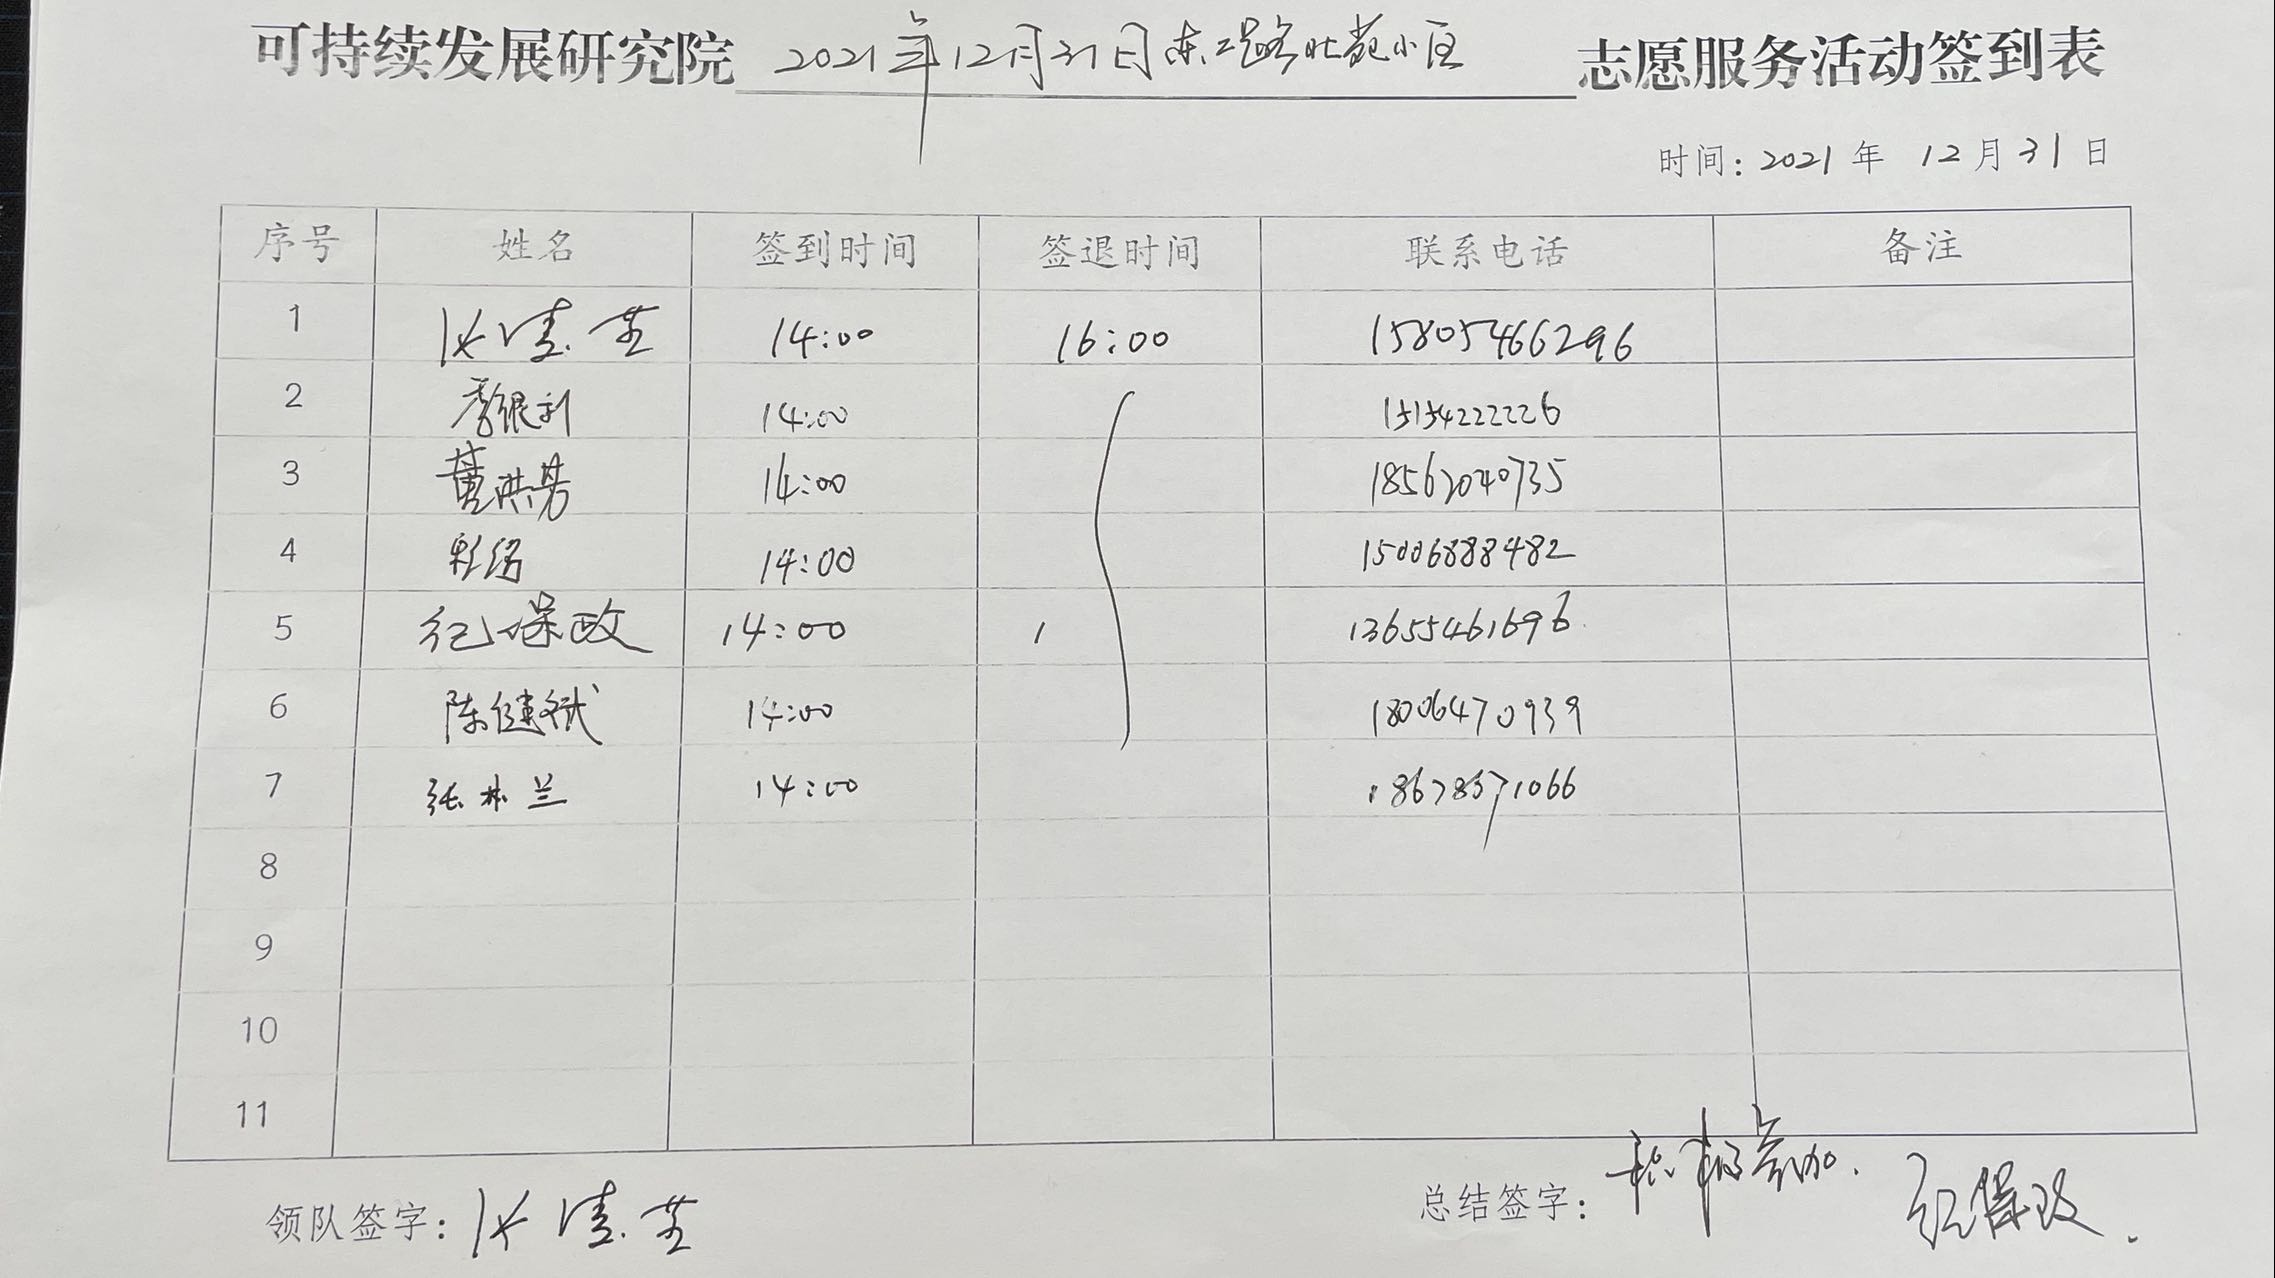 可持续发展研究院 2021年12月31日东二路北苑小区 志愿服务活动签到表
时间: 2021 年 12 月 31 日
序号 姓名 签到时间 签退时间 联系电话 备注
1 14:00 16:00 15805466296
2 李银利 14:00 15154222226
3 董洪芳 14:00 18562040735
4 14:00 15006888482
5 纪保政 14:00 13655461696
6 陈继斌 14:00 18006470939
7 张林兰 14:00 18678571066
8
9
10
11
领队签字:
总结签字: 积极参加. 纪保政.